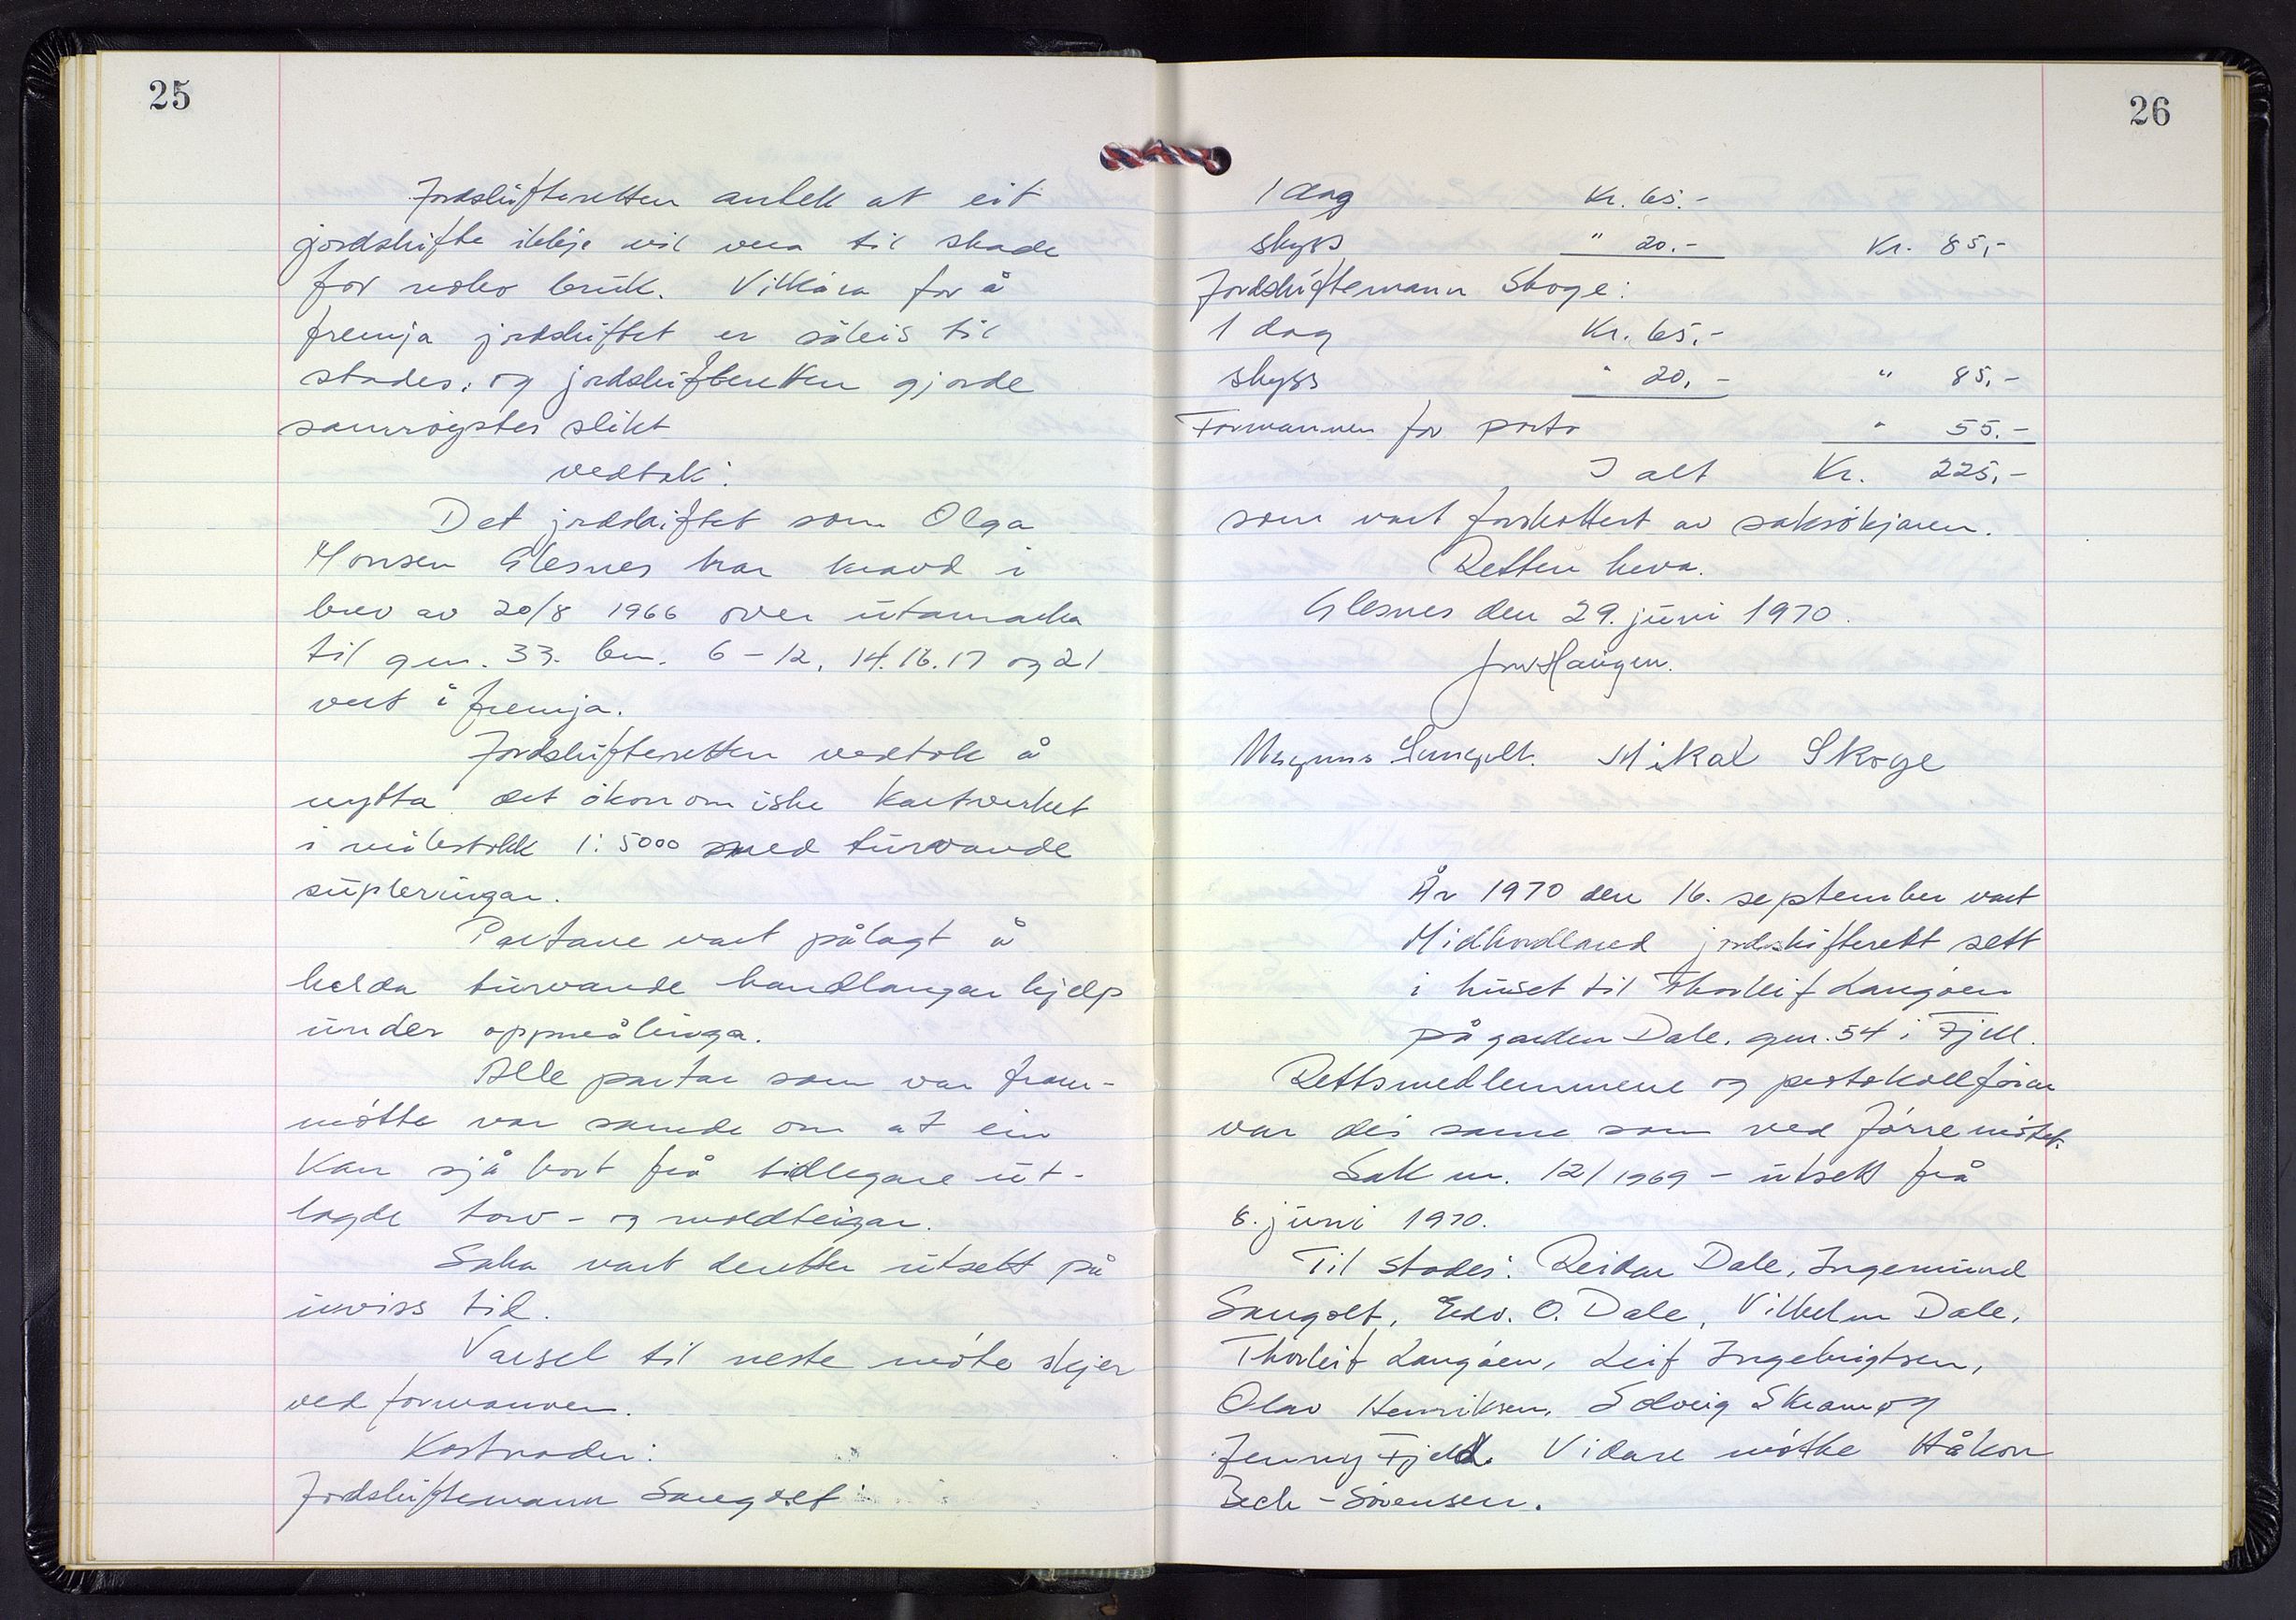 25
Jordskifteretten antek at eit
jordskifte ikkje vil vera til skade
for noko bruk. Vilkåra for å
fremja jordskiftet er såleis til
stades, og jordskifteretten gjorde
samrøystes slikt
vedtak:
Det jordskiftet som Olga
Monsen Glesnes har kravd i
brev av 20/8 1966 over utamarka
til gnr. 33. bnr. 6-12, 14. 16. 17 og 21
vert å fremja.
Jordskifteretten vedtok å
nytta det økonomiske kartverket
i målestokk 1:5000 med turvande
supleringar.
Partane vart pålagt å
halda turvande handlangar hjelp
under oppmålinga.
Alle partar som var fram-
møtte var samde om at ein
kan sjå bort frå tidlegare ut-
lagde torv- og moldteigar.
Saka vart deretter utsett på
uviss tid.
Varsel til neste møte skjer
ved formannen.
Kostnader:
Jordskiftemann Sangolt:
26
1 dag Kr. 65.-
skyss " 20.- Kr. 85,-
Jordskiftemann Skoge:
1 dag Kr. 65,-
skyss " 20,- " 85,-
Formannen for porto " 55.-
I alt Kr. 225,-
som vart forskottert av saksøkjaren.
Retten heva.
Glesnes den 29. juni 1970.
Haugen.
Magnus Sangolt. Mikal Skoge
År 1970 den 16. september vart
Midhordland jordskifterett sett
i huset til Thorleif Langøen
på garden Dale, gnr. 54 i Fjell.
Rettsmedlemmene og protokollførar
var dei same som ved førre møtet.
Sak nr. 12/1969 - utsett frå
8. juni 1970.
Til stades: Reidar Dale, Ingemund
Sangolt, Edv. O. Dale, Vilhelm Dale,
Thorleif Langøen, Leif Ingebrigtsen,
Olav Henriksen, Solveig Skram og
Jenny Fjeld. Vidare møtte Håkon
Bech-Sørensen.